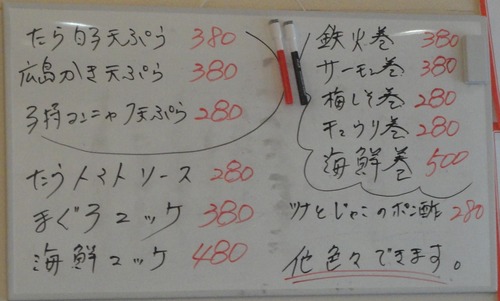 たら白子天ぷら 380
広島かき天ぷら 380
子持コンニャク天ぷら 280
たらトマトソース 280
まぐろユッケ 380
海鮮ユッケ 480
鉄火巻 380
サーモン巻 380
梅しそ巻 280
キュウリ巻 280
海鮮巻 500
ツナとじゃこのポン酢 280
他色々できます。